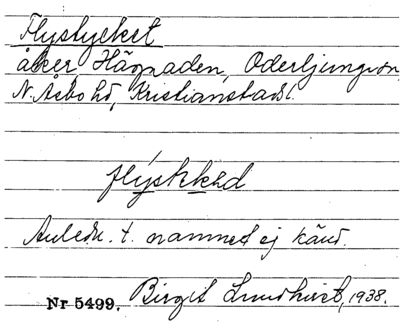 Flystycket
åker, Hägnaden, Oderljunga sn
N. Åsbo hd, Kristianstads l.
flýskkəd
Anledn. t. namnet ej känd.
Nr 5499. Birgit Lundkvist, 1938.